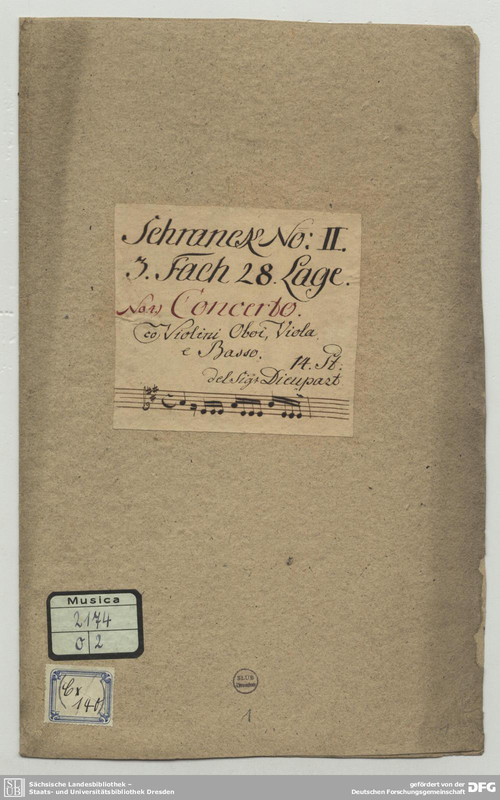 Schranck No: II.
3. Fach 28. Lage.
Concerto.
co Violini Oboi, Viola
e Basso. 14. St:
del Sigr Dieupart
Musica
2174
O 2
(Cx
140)
SLUB
1
SLUB
Sächsische Landesbibliothek –
Staats- und Universitätsbibliothek Dresden
gefördert von der
Deutschen Forschungsgemeinschaft
DFG